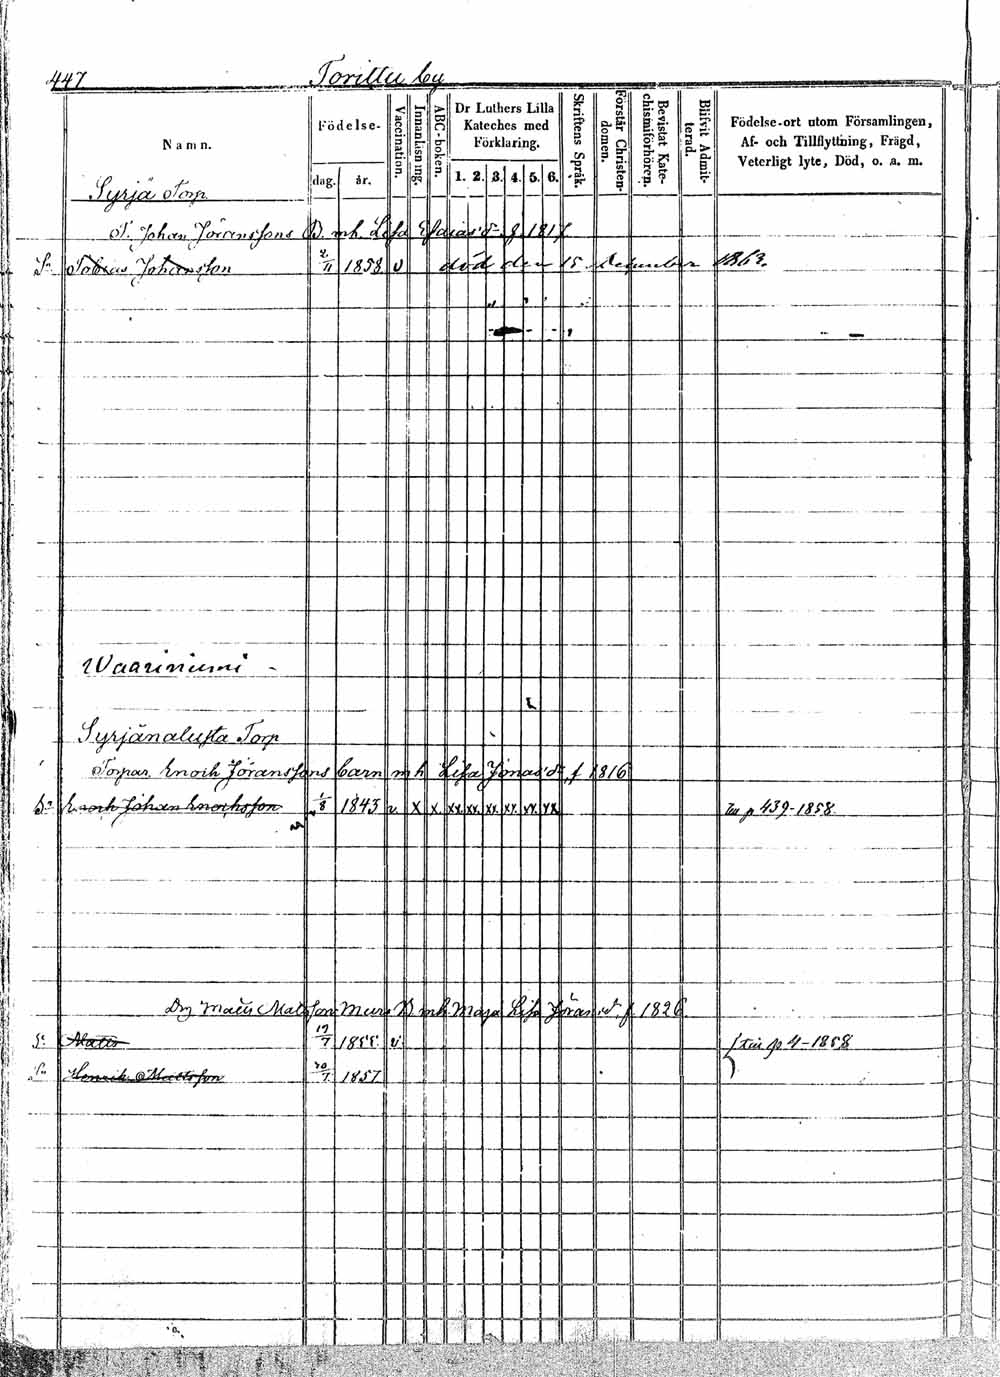 447 Torittu by
Namn.
Födelse-
dag. år.
Vaccination.
Innanläsning.
ABC-boken.
Dr Luthers Lilla
Kateches med
Förklaring.
1. 2. 3. 4. 5. 6.
Skriftens Språk.
Förstår Christen-
domen.
Bevistat Kate-
chismiförhören.
Blifvit Admit-
terad.
Födelse-ort utom Församlingen,
Af- och Tillflyttning, Frägd,
Veterligt lyte, Död, o. a. m.
Syrjä Torp
T. Johan Jöranssons B. mh. Lisa Esaiasd. f. 1817
Sn Tobias Johansson 2/11 1858 v död den 15 December 1863.
Waariniemi
Syrjänalusta Torp
Torpar. Enoch Jöranssons barn mh Lisa Jonasd. f 1816
Enoch Johan Enochsson 1/8 1843 v. X X. xx. xx. xx. xx. xx. xx p 439-1858.
Matts Matsson Murs B mh. Maja Lisa Jörans d. f. 1826.
Matts 17/7 1855. v. 4-1858
Sn Henrik Mattsson 20/7 1857